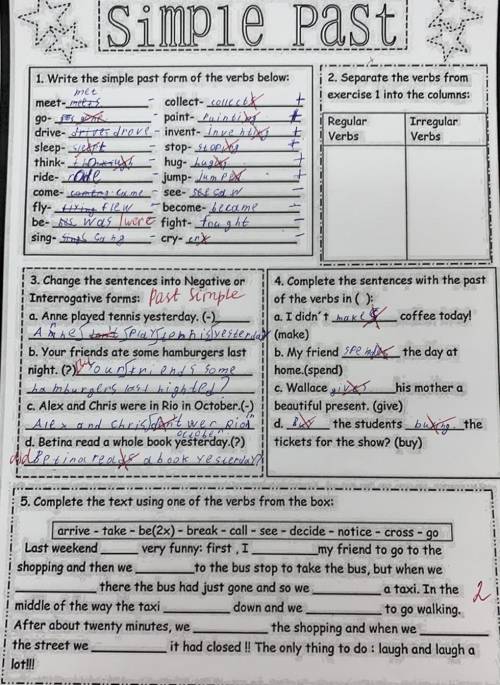 Simple Past
1. Write the simple past form of the verbs below:
met
meet- meets - collect- collects +
go- - paint- Painting +
drive- drives drove - invent- Inventing +
sleep- slept - stop- stoping +
think- - hug- huges +
ride- rode jump- Jumped +
come- coming came - see- see saw -
fly- flying flew - become- became -
be- was / were fight- fought -
sing- sang - cry- cry
2. Separate the verbs from
exercise 1 into the columns:
Regular Verbs Irregular Verbs
3. Change the sentences into Negative or
Interrogative forms: Past Simple
a. Anne played tennis yesterday. (-)
Anne play tennis yesterday
b. Your friends ate some hamburgers last
night. (?) Your friends some
hamburgers last nighted?
c. Alex and Chris were in Rio in October.(-)
Alex and Chris dont wer Rio in
October
d. Betina read a whole book yesterday.(?)
did Betina reads a book yesterday?
4. Complete the sentences with the past
of the verbs in ( ):
a. I didn't makes coffee today!
(make)
b. My friend spends the day at
home.(spend)
c. Wallace gives his mother a
beautiful present. (give)
d. Buy the students buying the
tickets for the show? (buy)
5. Complete the text using one of the verbs from the box:
arrive - take - be(2x) - break - call - see - decide - notice - cross - go
Last weekend ______ very funny: first , I ______ my friend to go to the
shopping and then we ______ to the bus stop to take the bus, but when we
______ there the bus had just gone and so we ______ a taxi. In the
middle of the way the taxi ______ down and we ______ to go walking.
After about twenty minutes, we ______ the shopping and when we ______
the street we ______ it had closed !! The only thing to do : laugh and laugh a
lot!!!
2